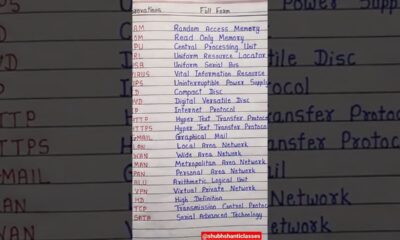 Full Form
RAM Random Access Memory
ROM Read Only Memory
CPU Central Processing Unit
URL Uniform Resource Locator
USB Uniform Serial Bus
VIRUS Vital Information Resource
UPS Uninterruptible Power Supply
CD Compact Disc
DVD Digital Versatile Disc
IP Internet Protocol
HTTP Hyper Text Transfer Protocol
HTTPS Hyper Text Transfer Protocol
GMAIL Graphical Mail
LAN Local Area Network
WAN Wide Area Network
MAN Metropolitan Area Network
PAN Personal Area Network
ALU Arithmetic Logical Unit
VPN Virtual Private Network
HD High Definition
TCP Transmission Control Protocol
SATA Serial Advanced Technology
@shubhshanticlasses